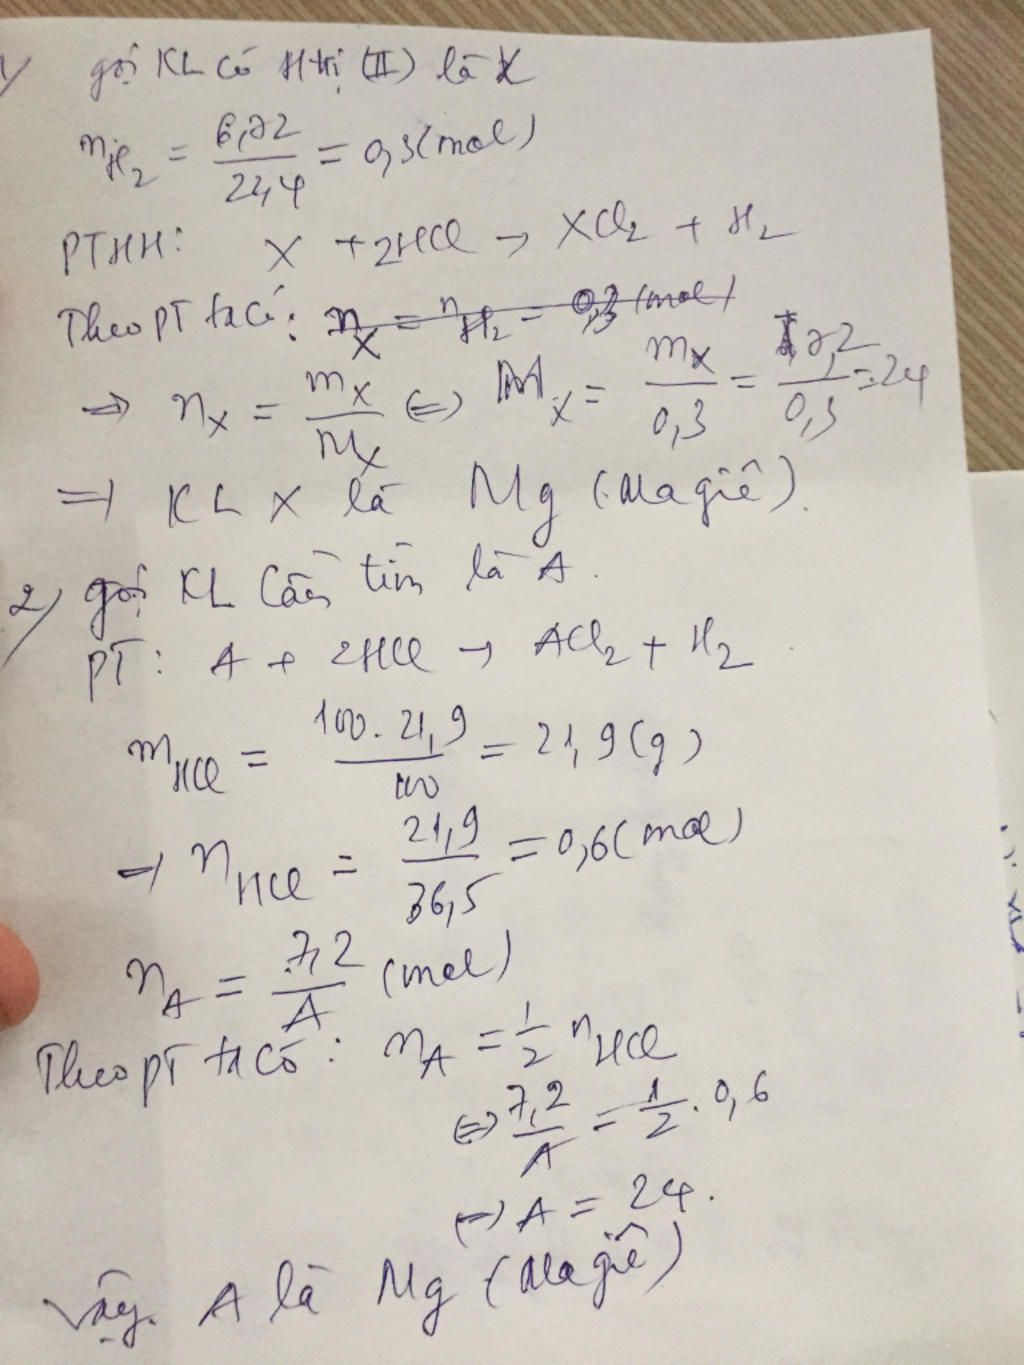 1/ gọi KL có Htrị (II) là X
nH2 = 6,72/22,4 = 0,3 (mol)
PTHH: X + 2HCl → XCl2 + H2
Theo PT ta có: nX = nH2 = 0,3 (mol)
⇒ nX = mX/MX ⇔ MX = mX/0,3 = 7,2/0,3 = 24
⇒ KL X là Mg (Magiê).
2/ gọi KL cần tìm là A.
PT: A + 2HCl → ACl2 + H2
mHCl = 100.21,9/100 = 21,9 (g)
⇒ nHCl = 21,9/36,5 = 0,6 (mol)
nA = 7,2/A (mol)
Theo PT ta có: nA = 1/2 nHCl
⇔ 7,2/A = 1/2 . 0,6
⇔ A = 24.
Vậy A là Mg (Magiê)